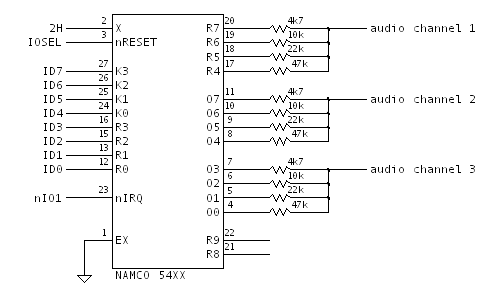 2H 2 X R7 20 4k7 audio channel 1
IOSEL 3 nRESET R6 19 10k
R5 18 22k
ID7 27 K3 R4 17 47k
ID6 26 K2
ID5 25 K1 O7 11 4k7 audio channel 2
ID4 24 K0 O6 10 10k
ID3 16 R3 O5 9 22k
ID2 15 R2 O4 8 47k
ID1 13 R1
ID0 12 R0 O3 7 4k7 audio channel 3
O2 6 10k
nIO1 23 nIRQ O1 5 22k
O0 4 47k
1 EX R9 22
R8 21
NAMCO 54XX